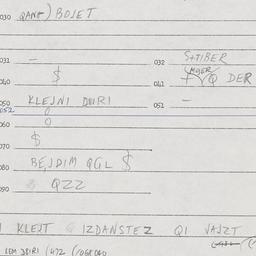 030 QANE) BOJET
031 —
032 S+TIBER
MOJER
040 $
041 + V Q DER
050 KLEJNI DRIRI
051 —
052 0
060 0
070 $
080 BEJDIM QGL $
090 QZZ
KLEJT IZDANSTEZ QI VAJZT
DRIRI (472